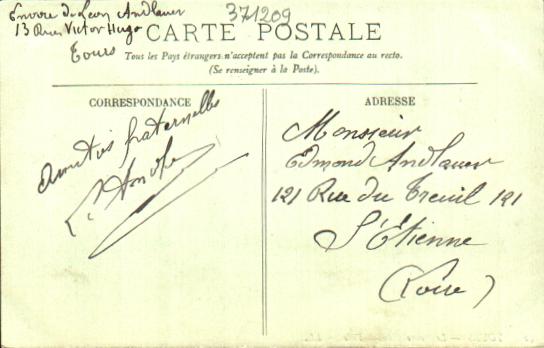 Envoie de Léon Andlauer
13 Rue Victor Hugo
Tours
371209
CARTE POSTALE
Tous les Pays étrangers n'acceptent pas la Correspondance au recto.
(Se renseigner à la Poste).
CORRESPONDANCE
Amitiés fraternelles
ADRESSE
Monsieur
Edmond Andlauer
121 Rue du Treuil 121
St Etienne
(Loire)